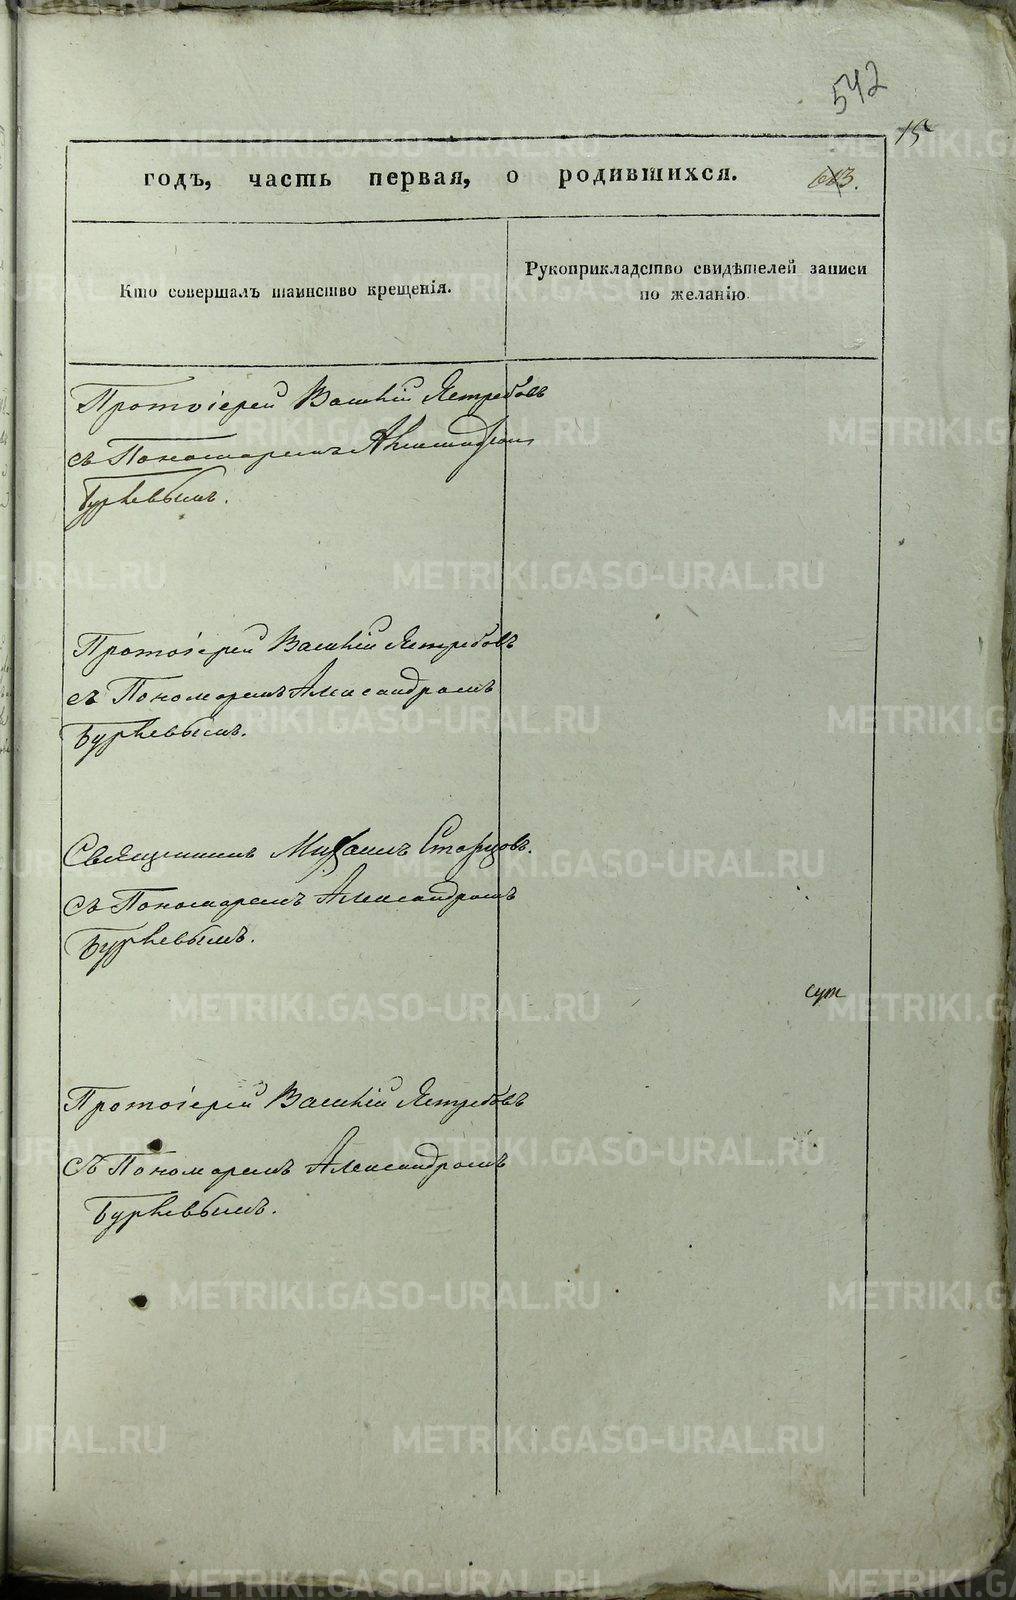 542
15
годъ, часть первая, о родившихся.
613.
Кто совершалъ таинство крещенія.
Рукоприкладство свидѣтелей записи
по желанію.
Протоіерей Василій Ястребовъ
съ Пономаремъ Александромъ
Бурчевымъ.
Протоіерей Василій Ястребовъ
съ Пономаремъ Александромъ
Бурчевымъ.
Священникъ Михаилъ Старцовъ.
съ Пономаремъ Александромъ
Бурчевымъ.
Протоіерей Василій Ястребовъ
съ Пономаремъ Александромъ
Бурчевымъ.
METRIKI.GASO-URAL.RU